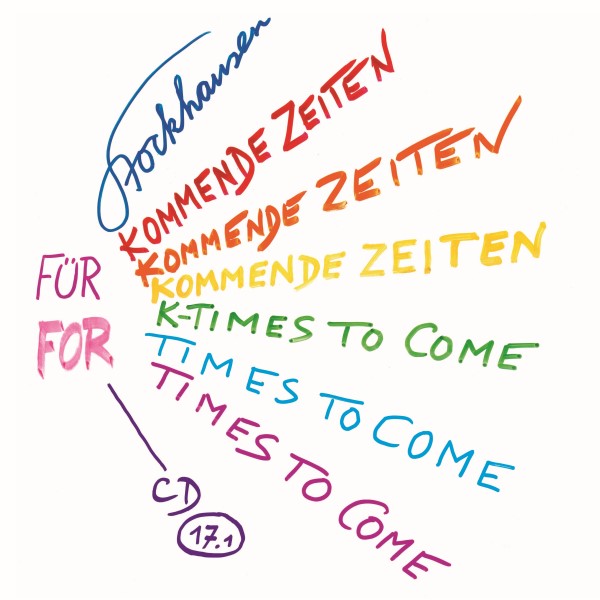 Stockhausen
KOMMENDE ZEITEN
KOMMENDE ZEITEN
KOMMENDE ZEITEN
FÜR
FOR
K-TIMES TO COME
TIMES TO COME
TIMES TO COME
CD
17.1